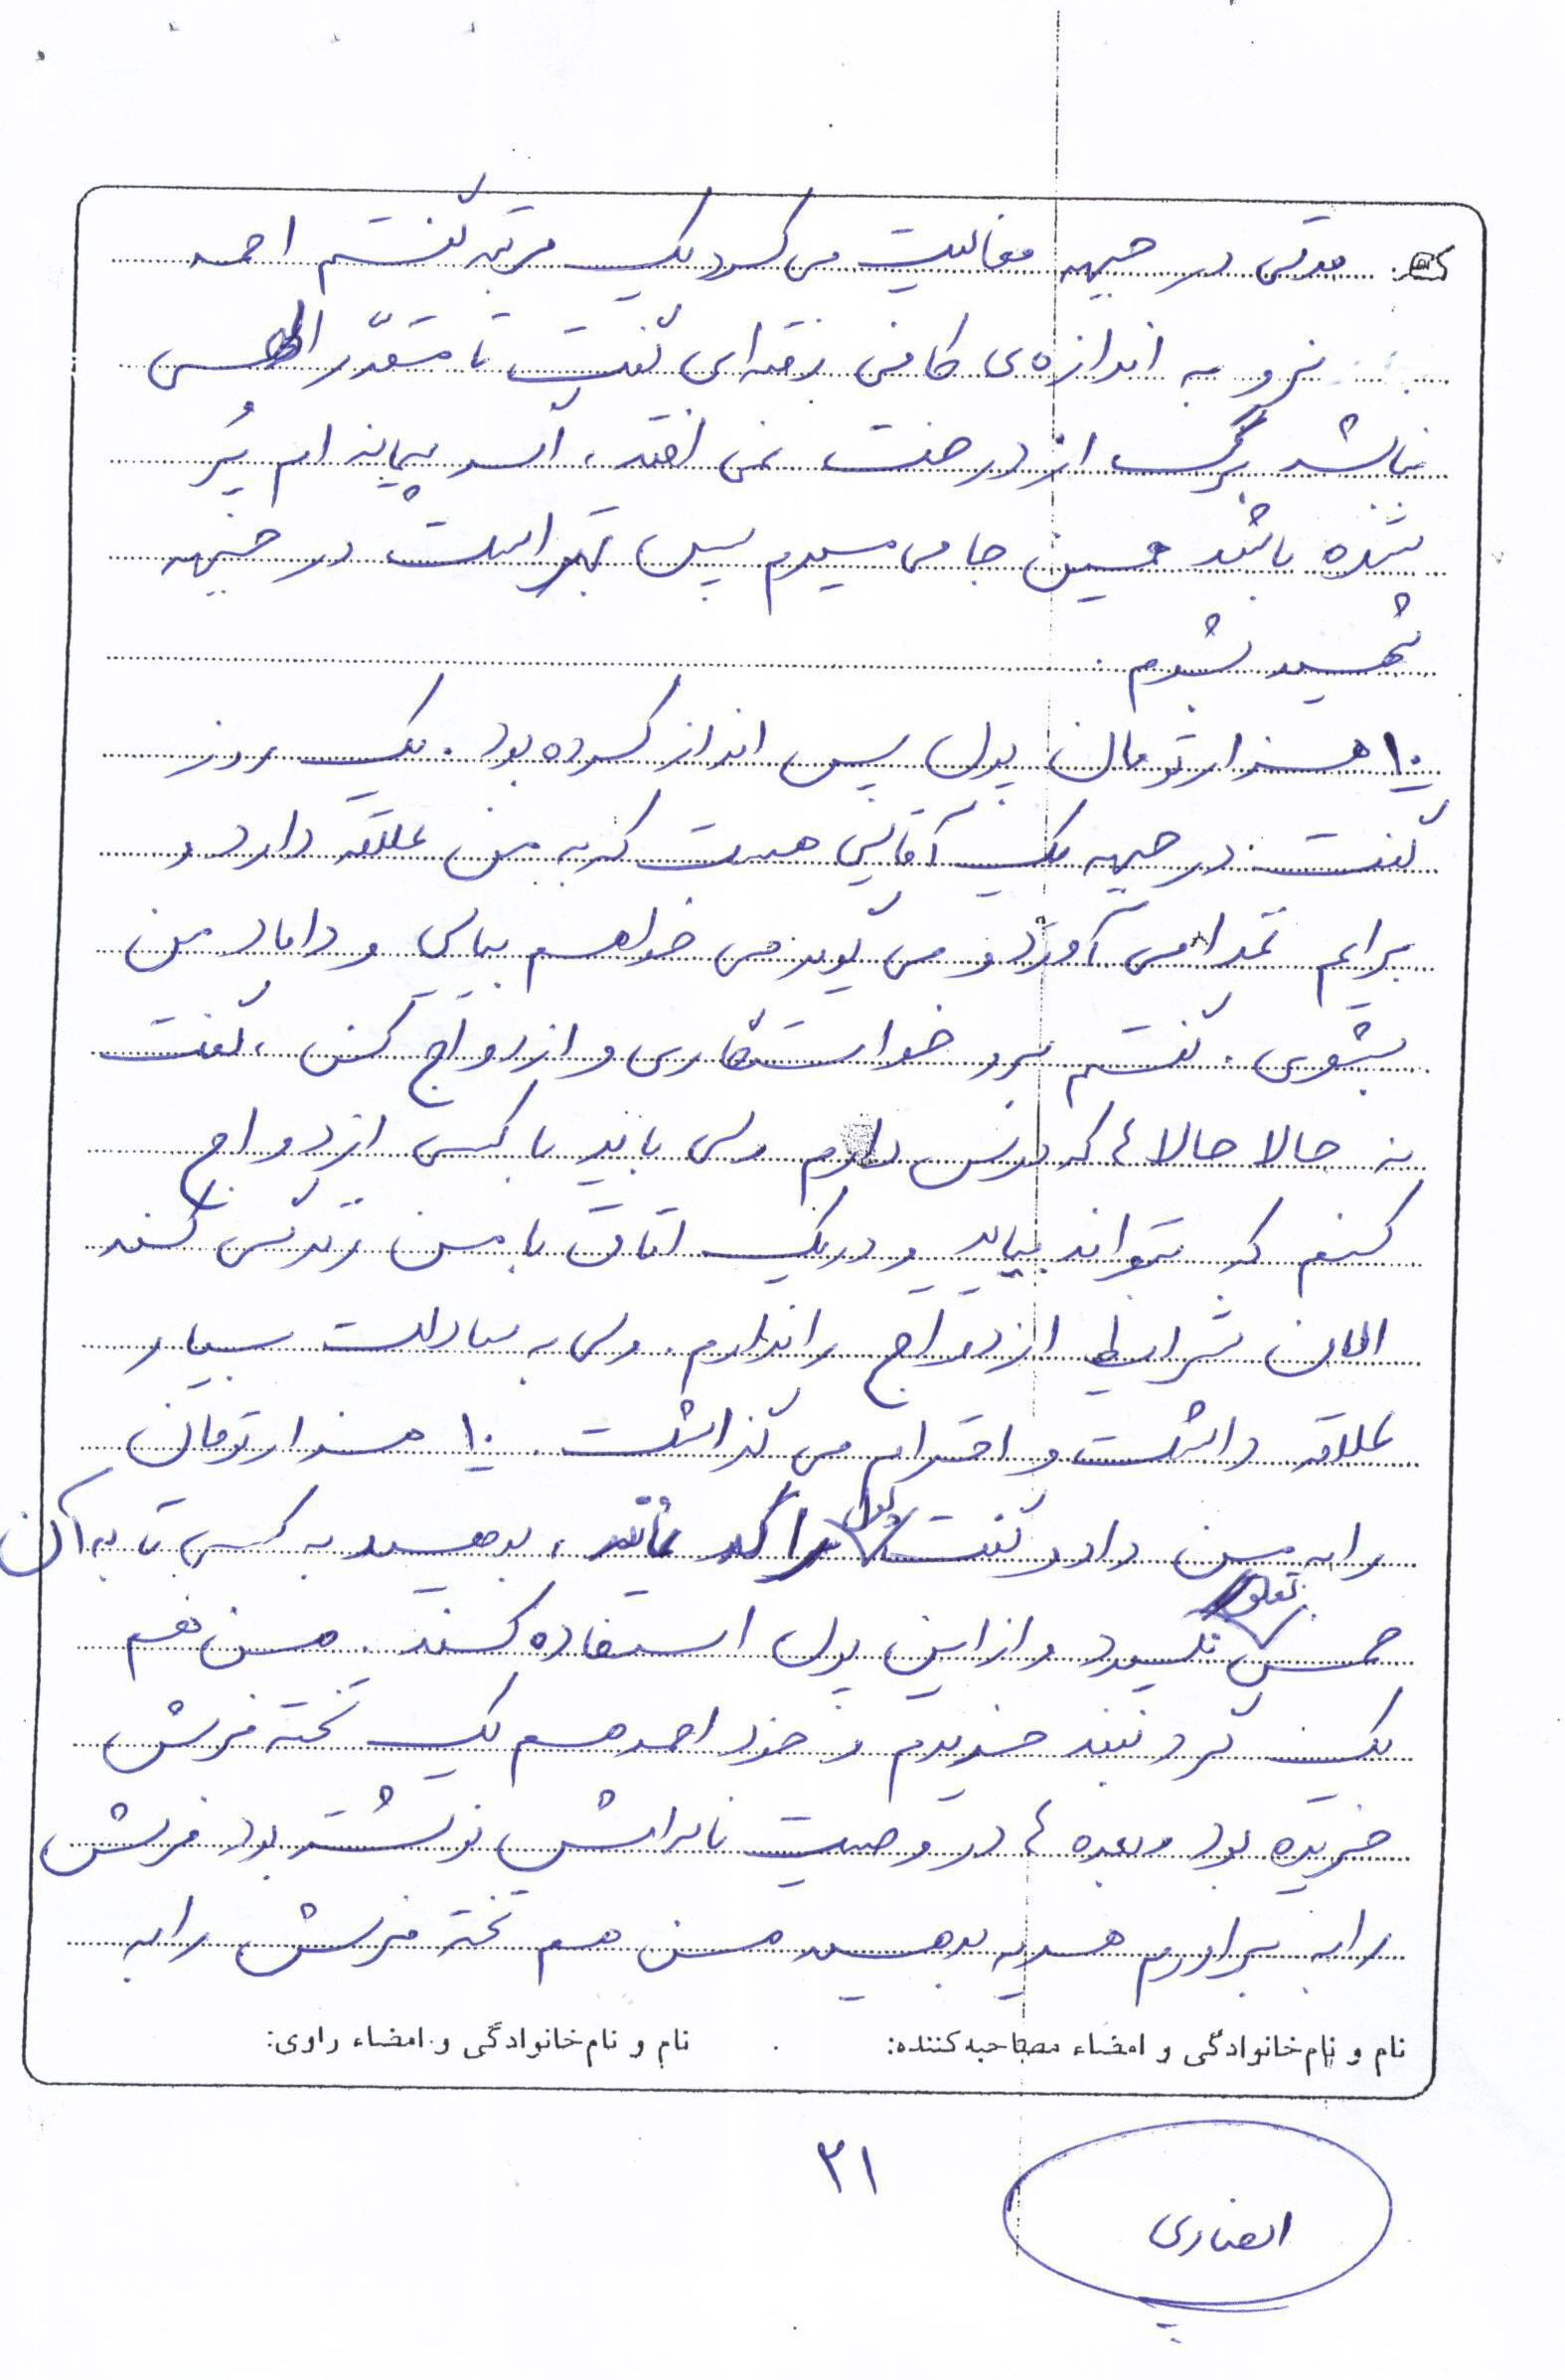 مدتی در جبهه فعالیت می کرد یک مرتبه گفتم احمد
نرو به اندازه ی کافی رفته ای گفت تا مقدّر الهی
نباشد برگ از درخت نمی افتد، اگر پیمانه ام پُر
شده باشد همین جا می میرم پس بهتر است در جبهه
شهید بشوم.
۱۰ هزار تومان پول پس انداز کرده بود. یک روز
گفت در جبهه یک آقائی هست که به من علاقه دارد و
برایم غذا می آورد و می گوید می خواهم بیایی و داماد من
بشوی. گفتم برو خواستگاری و ازدواج کن، گفت
نه حالا حالاها که درس دارم ولی باید با کسی ازدواج
کنم که بتواند بیاید و در یک اتاق با من زندگی کند
الان شرایط ازدواج را ندارم. ولی به سادات بسیار
علاقه داشت و احترام می گذاشت. ۱۰ هزار تومان
را به من داد و گفت پول راکد نماند، بدهید به کسی تا به آن
خمس تعلق نگیرد و از این پول استفاده کند. من هم
یک گردنبند خریدم و خود احمد هم یک تخته فرش
خریده بود و بعدها در وصیت نامه اش نوشته بود فرش
را به برادرم هدیه بدهید من هم تخته فرش را به
نام و نام خانوادگی و امضاء مصاحبه کننده:
نام و نام خانوادگی و امضاء راوی:
۲۱
انصاری